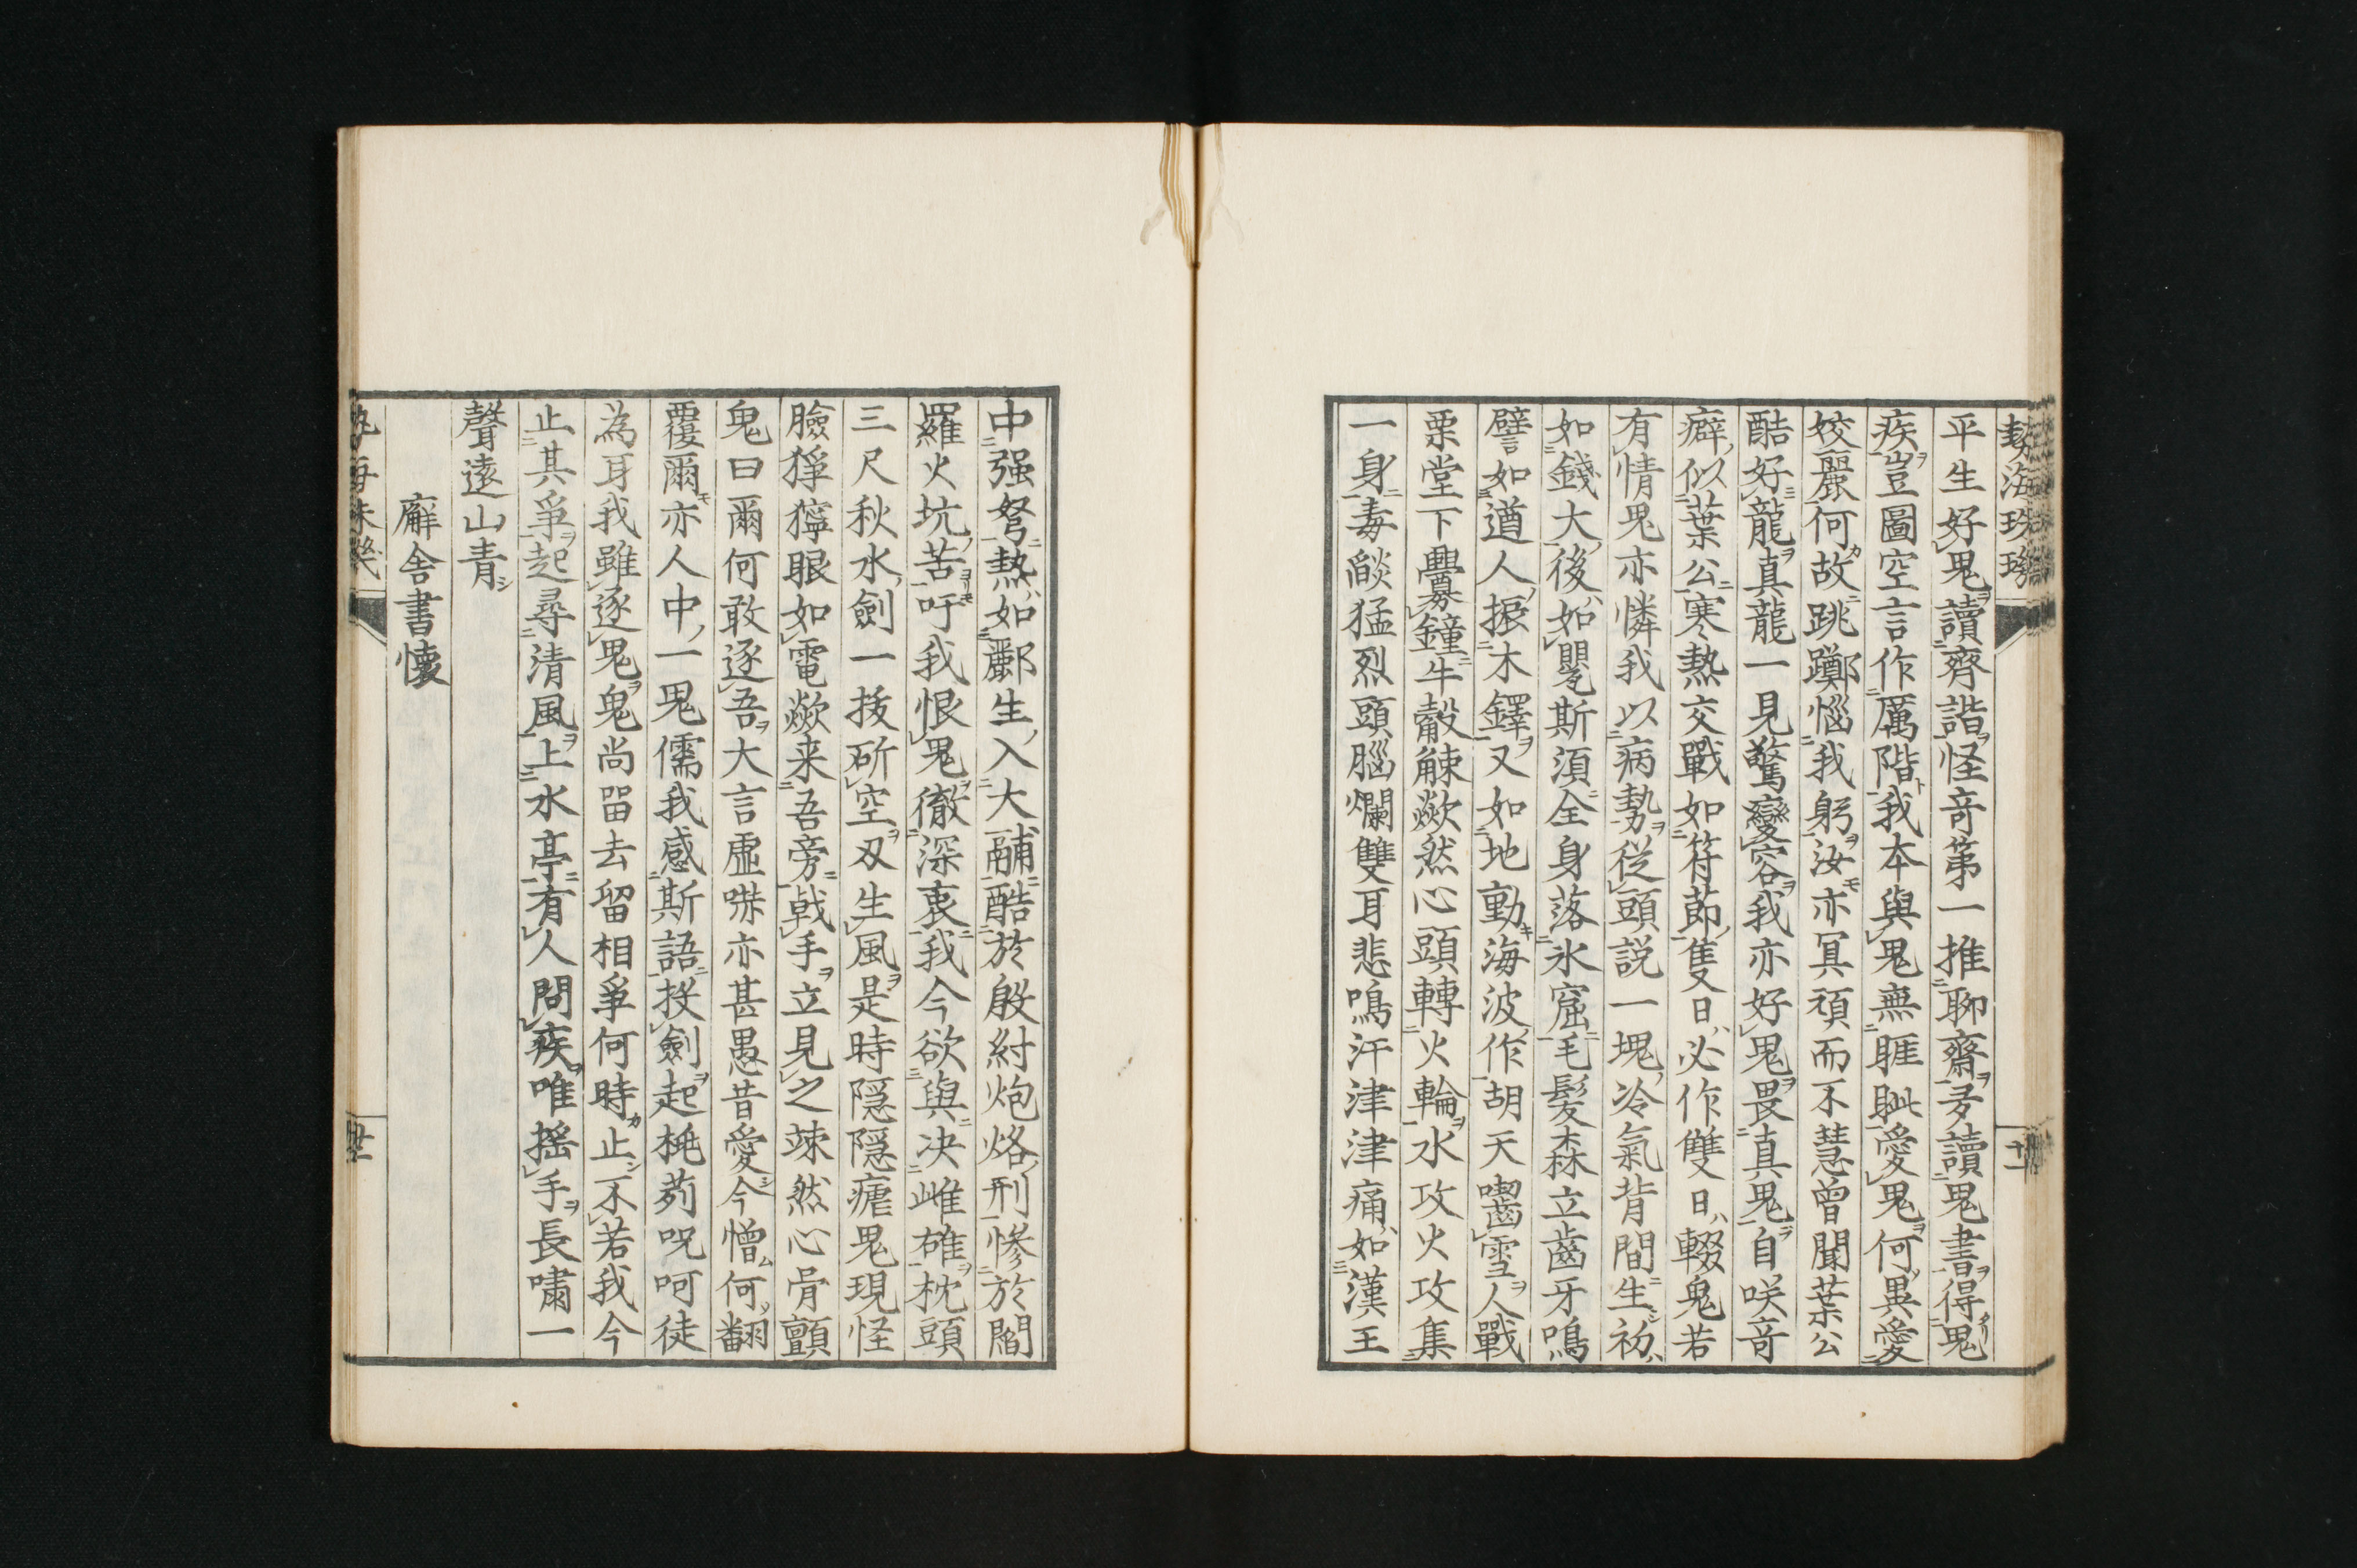 平生好鬼讀齊諧怪奇第一推聊齋多讀鬼書得鬼
疾豈圖空言作厲階我本與鬼無睚眦愛鬼何異愛
姣麗何故跳躑惱我躬汝亦冥頑而不慧曾聞葉公
酷好龍真龍一見驚變容我亦好鬼畏真鬼自咲奇
癖似葉公寒熱交戰如符節隻日必作雙日輟鬼若
有情鬼亦憐我以病勢従頭説一塊冷氣背間生初
如錢大後如甖斯須全身落氷窟毛髮森立齒牙鳴
譬如遒人振木鐸又如地動海波作胡天囓雪人戰
栗堂下釁鐘牛觳觫歘然心頭轉火輪水攻火攻集
一身毒燄猛烈頭腦爛雙耳悲鳴汗津津痛如漢王
中强弩熱如酈生入大鬴酷於殷紂炮烙刑惨於閻
羅火坑苦吁我恨鬼徹深衷我今欲與决雌雄枕頭
三尺秋水劍一拔斫空刄生風是時隠隠瘧鬼現怪
臉猙獰眼如電歘来吾旁戟手立見之竦然心骨顫
鬼曰爾何敢逐吾大言虛嚇亦甚愚昔愛今憎何翻
覆爾亦人中一鬼儒我感斯語投劍起桃茢呪呵徒
為耳我雖逐鬼鬼尚畱去留相爭何時止不若我今
止其爭起尋清風上水亭有人問疾唯揺手長嘯一
聲遠山青
廨舎書懐